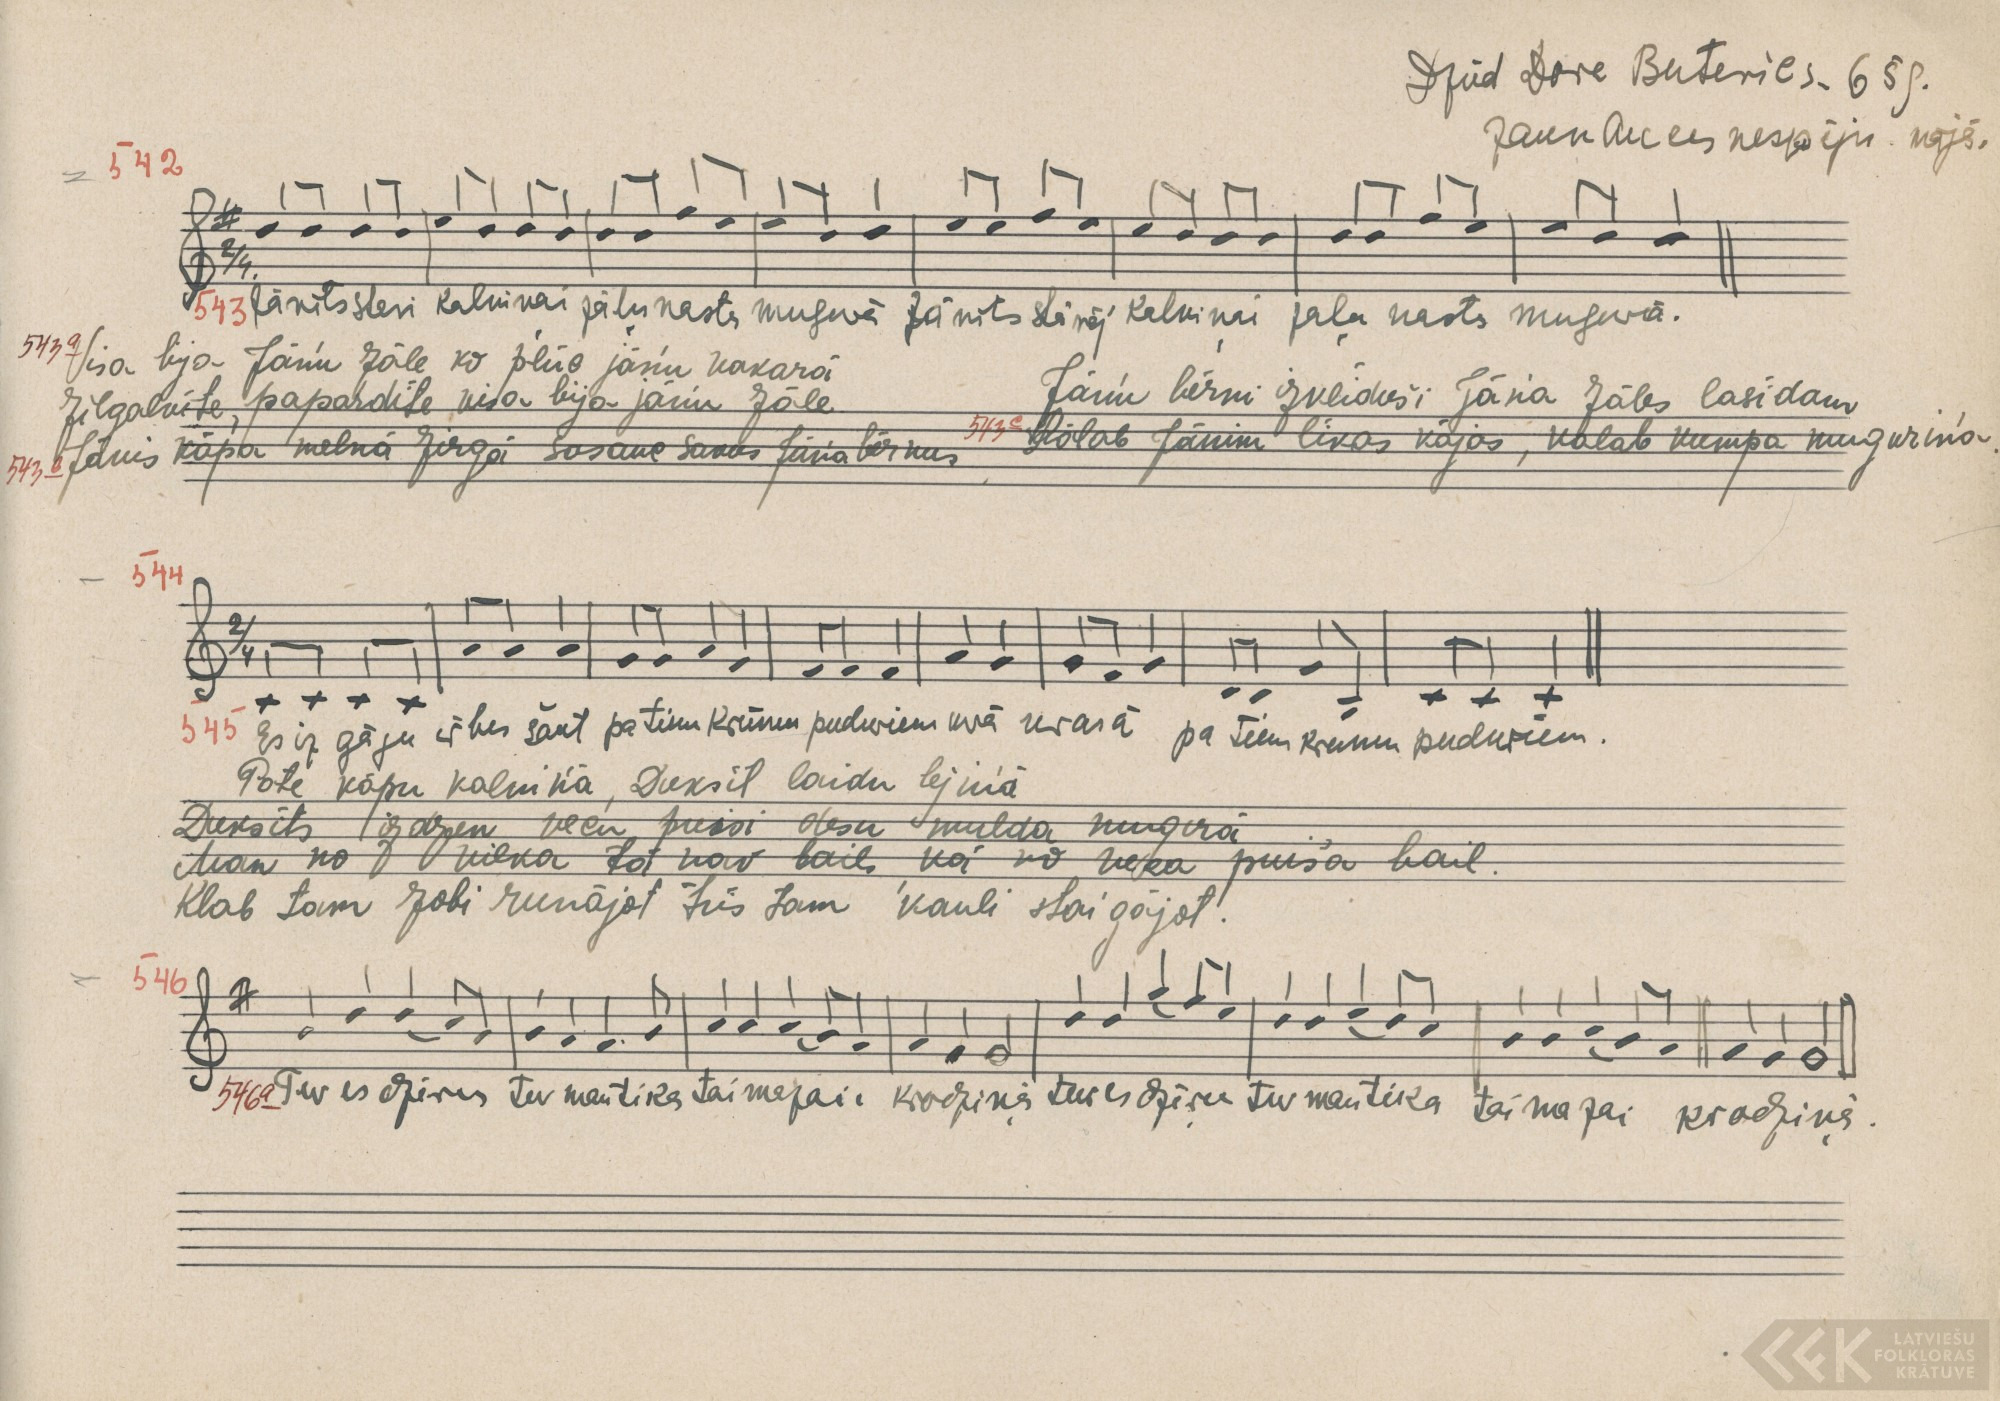 Dzied Dore Buteriės. 65 g.
Jaun Auces nespēju. mājā.
542
2/4.
543 Jānits stevi kalniņai zāļu nasta mugurā Jānits stāvēj kalniņai zaļu nasta mugurā.
543a Visa bija Jāņu zāle ko plūc jāņu vakarā
Zilgalvīte, papardīte visa bija jāņu zāle
543b Jānis kāpa melnā zirgā sasauc savus Jāņa bērnus
Jāņu bērni izklīduši Jāņa zāles lasīdam
543c Kālab Jānim līkas kājas, kālab kumpa muguriņa.
544
2/4
545 Es iz gāju irbes šaut pa tiem krūmu puduriem uvā vrasā pa tiem krūmu puduriem.
Pate kāpu kalniņā, Duksit laidu lejiņā
Duksits izdzen vecu puisi desu mulda mugurā
Man no vilka tā nav bail kā no veca puiša bail.
Klab tam zobi runājot trīs tam kauli staigājot.
546
546a Tev es dzirus tev mantika tai mazai krodziņā tev es dzīru tev mantika tai mazai krodziņā.
LATVIEŠU
FOLKLORAS
KRĀTUVE